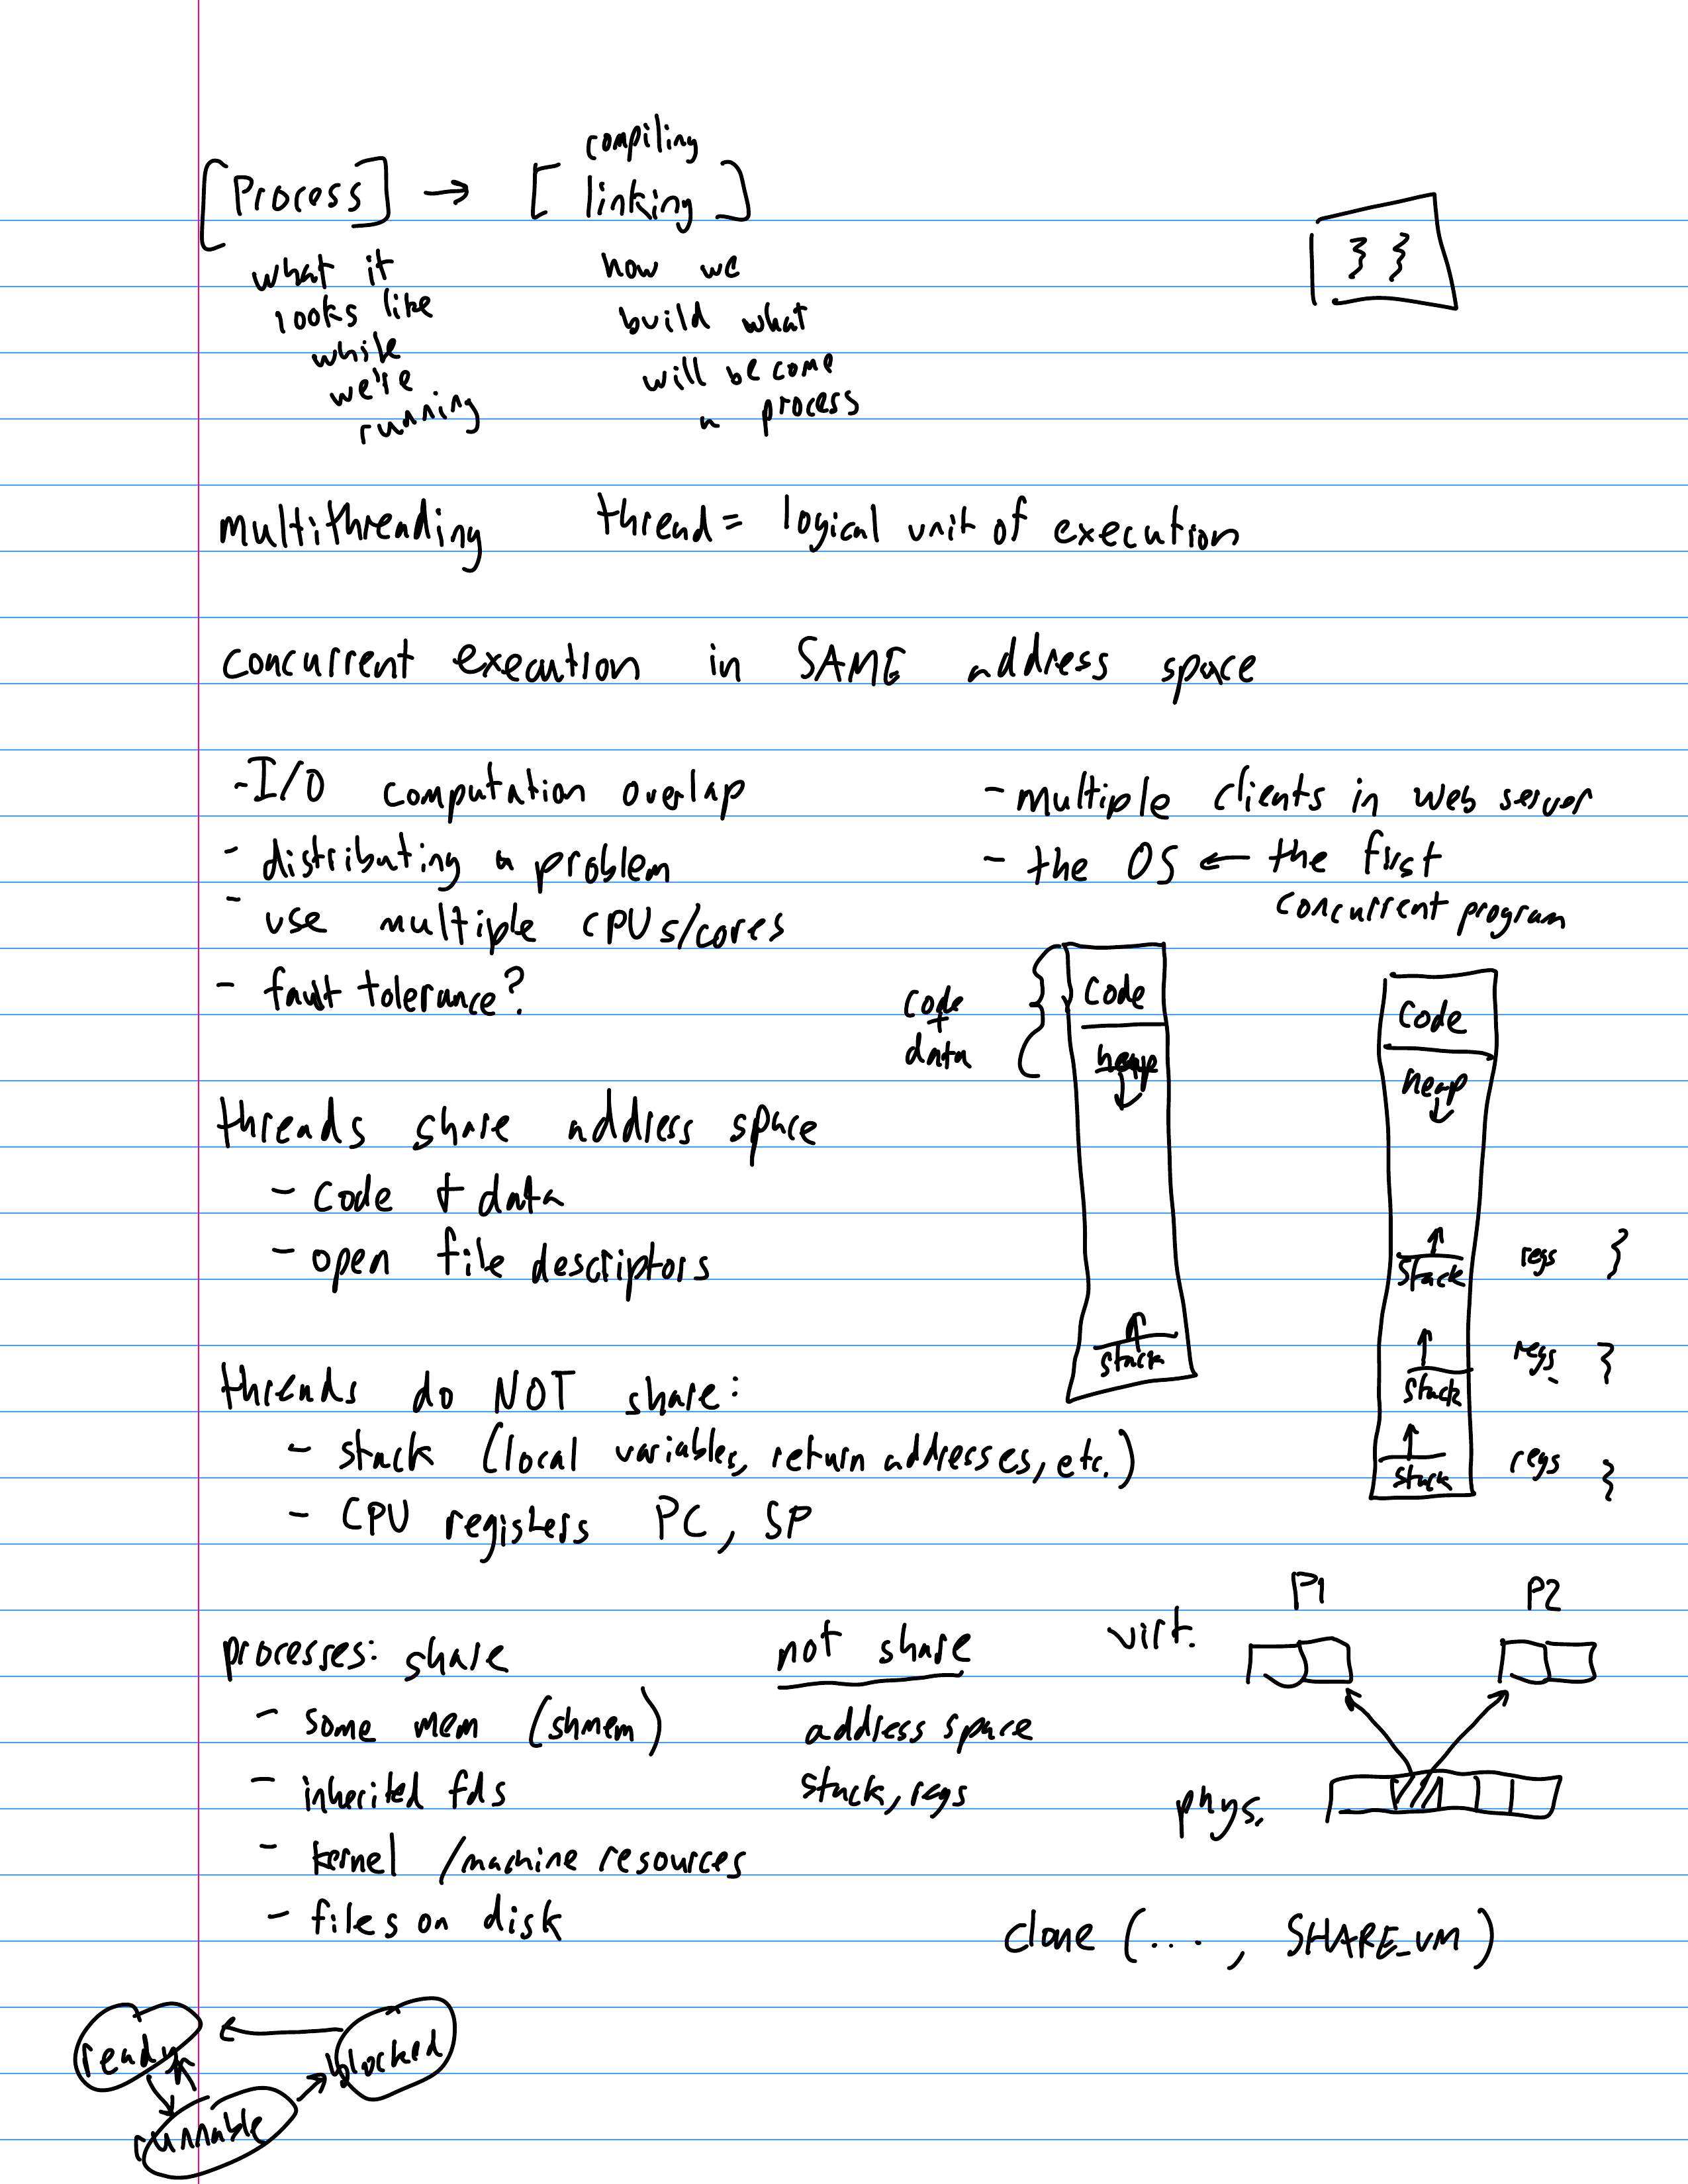 compiling
[Process] → [ linking ]
what it
looks like
while
we're
running
how we
build what
will become
a process
multithreading thread = logical unit of execution
concurrent execution in SAME address space
- I/O computation overlap
- distributing a problem
- use multiple CPUs/cores
- fault tolerance?
- multiple clients in web server
- the OS ← the first
concurrent program
code
+
data
code
heap
stack
code
heap
stack regs }
stack regs }
stack regs }
threads share address space
- code + data
- open file descriptors
threads do NOT share:
- stack (local variables, return addresses, etc.)
- CPU registers PC, SP
processes: share
- some mem (shmem)
- inherited fds
- kernel /machine resources
- files on disk
not share
address space
stack, regs
P1 P2
virt.
phys.
clone (..., SHARE_VM)
ready
blocked
runnable